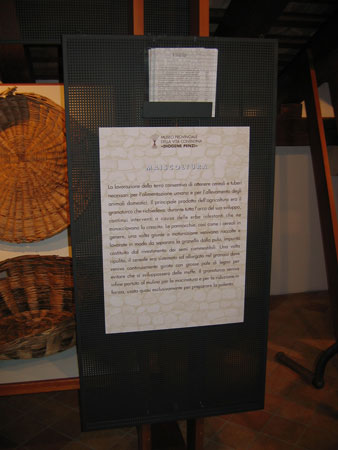 MUSEO PROVINCIALE
DELLA VITA CONTADINA
«DIOGENE PENZI»
MAISCOLTURA
La lavorazione della terra consentiva di ottenere cereali e tuberi
necessari per l'alimentazione umana e per l'allevamento degli
animali domestici. Il principale prodotto dell'agricoltura era il
granoturco che richiedeva, durante tutto l'arco del suo sviluppo,
continui interventi a causa delle erbe infestanti che ne
ostacolavano la crescita. Le pannocchie, così come i cereali in
genere, una volta giunte a maturazione venivano raccolte e
lavorate in modo da separare la granella dalla pula,
costituita dal rivestimento dei semi Una volta
ripulito, il cereale era sistemato ed allargato nel granaio dove
veniva continuamente girato con grosse pale di legno per
evitare che si sviluppassero delle muffe. Il granoturco veniva
infine portato al mulino per la macinatura e per la riduzione in
farina, usata quasi esclusivamente per preparare la polenta.